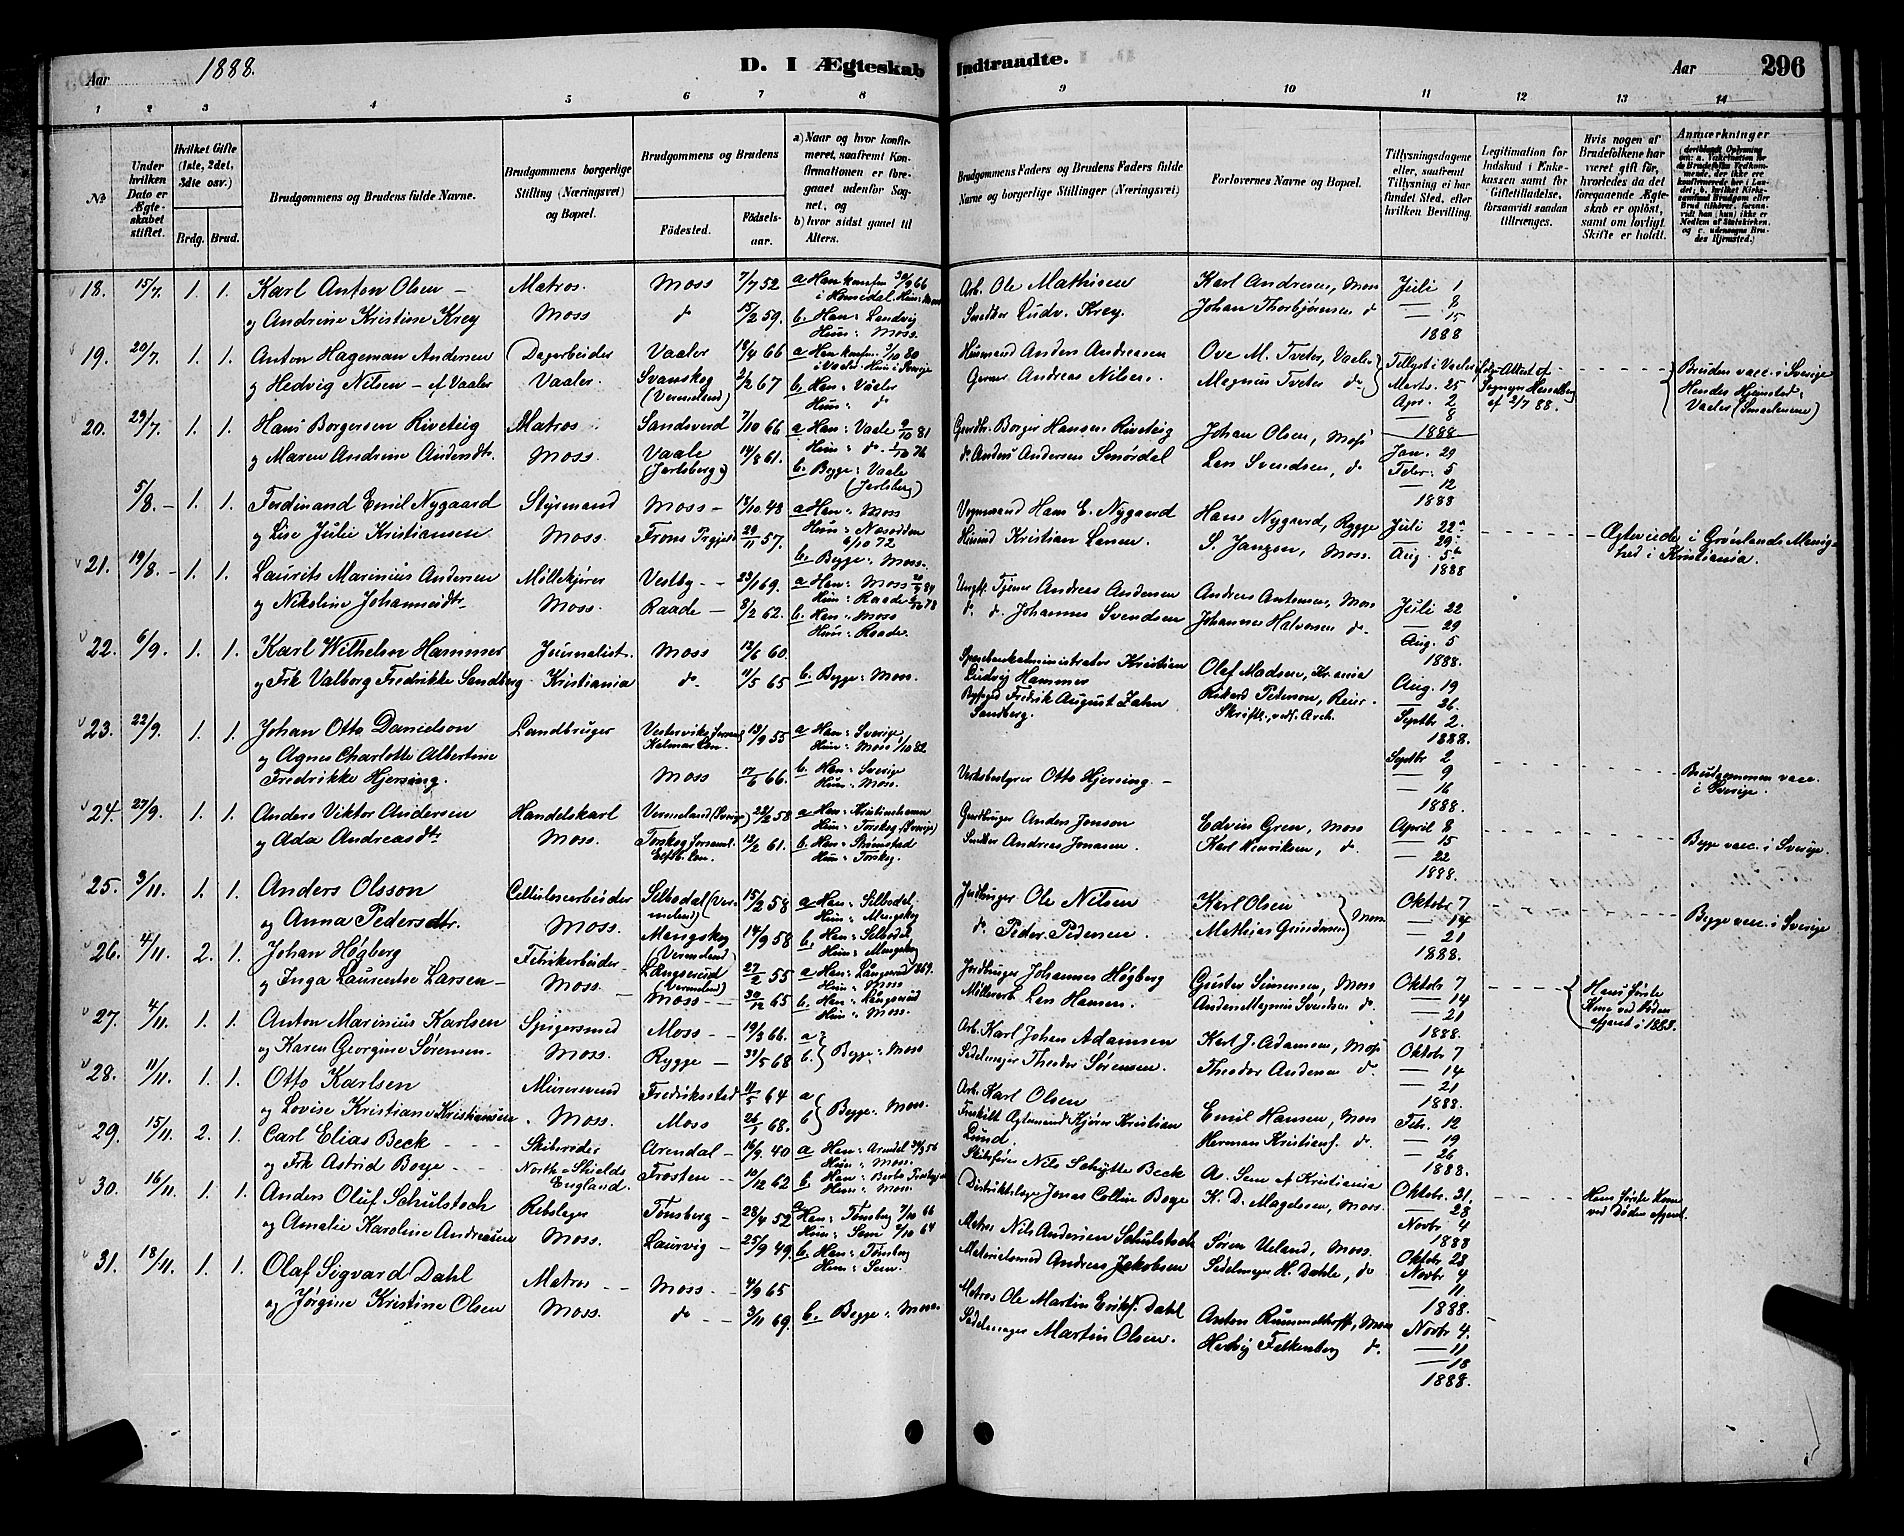 Aar 1888. D. I Ægteskab Indtraadte. Aar 296
1 2 3 4 5 6 7 8 9 10 11 12 13 14
№
Under hvilken Dato er Ægteskabet stiftet.
Hvilket Gifte (1ste, 2det, 3die osv.)
Brdg. Brud.
Brudgommens og Brudens fulde Navne.
Brudgommens borgerlige Stilling (Næringsvei) og Bopæl.
Brudgommens og Brudens
Fødested. Fødselsaar.
a) Naar og hvor konfirmeret, saafremt Konfirmationen er foregaaet udenfor Sognet, og
b) hvor sidst ganet til Alters.
Brudgommens Faders og Brudens Faders fulde Navne og borgerlige Stillinger (Næringsvei)
Forlovernes Navne og Bopæl.
Tillysningsdagene eller, saafremt Tillysning ei har fundet Sted, efter hvilken Bevilling.
Legitimation for Indskud i Enkekassen samt for Giftetilladelse, forsaavidt saadan tiltrænges.
Hvis nogen af Brudefolkene har været gift før, hvorledes da det foregaaende Ægteskab er opløst, samt om lovligt Skifte er holdt.
Anmærkninger
18. 15/7. 1. 1. Karl Anton Olsen – Matros. Moss 7/7 52 a Han konfm 30/9 66 Arb. Ole Mathisen Karl Andresen, Moss Juli 1
i Homedal. Hun: Moss – 8
og Andrine Kristine Krey Moss d 15/2 59. b. Han: Landvig Smedkr Ludv. Krey. Johan Thorbjørnsen d – 15
Hun: Moss. 1888
19. 20/7. 1. 1. Anton Hageman Andersen Dagarbeider Vaaler 18/4 66 a Han konfm. 3/10 80 Husmand Anders Andreasen Ove M. Tveter, Vaaler Tillyst i Vaaler Bruden vacc. i Sverige
i Vaaler. Hun i Sverige
og Hedvig Nilsen – af Vaaler Vaaler. Svanskog (Vermeland) 2/2 67 b. Han: Vaaler Garver Andreas Nilsen. Magnus Tveter d. Marts. 25 af 2/7 88. Hendes Hjemsted:
Hun: d Apr. 2 Vaaler (Smaalenene)
– 8
20. 29/7. 1. 1. Hans Borgersen Riveteig Matros Sandsverd 7/10 66 a Han: Vaale 9/10 81 Gaardbr. Borger Hansen Riveteig Johan Olsen, Moss 1888
og Maren Andrine Andersdtr. Moss. Vaale (Jarlsberg) 14/8 61. Hun: d. 1/10 76 d Anders Andersen Smørdal Lars Svendsen, d Jan. 29
b. Begge: Vaale (Jarlsberg) Febr. 5
– 12
1888
5/8. – 1. 1. Ferdinand Emil Nygaard Styrmand Moss – 18/10 48 a Han: Moss Vognmand Hans E. Nygaard Hans Nygaard, Rygge Juli 22 – Ægteviede i Grønlands Menig-
Hun: Nesodden 6/10 72 – 29
og Lise Julie Kristiansen Moss. 29/11 57. b. Begge: Moss. Husmd Kristian Larsen S. Janzen, Moss. Aug. 5 hed i Kristiania.
1888
21. 19/8. – 1. 1. Laurits Marinius Andersen Møllekjører Vestby – 23/1 69. a Han: Moss 20/9 84 Ungk. Tjener Andreas Andersen Andreas Antonsen, Moss Juli 22
Hun: Raade 78
og Nikoline Johannesdtr. Moss. Raade – 8/2 62. b. Han: Moss d. d. Johannes Svendsen Johannes Halvorsen d. – 29
Hun: Raade. Aug. 5
1888.
22. 6/9. 1. 1. Karl Wilhelm Hammer Journalist. Moss 12/6 60. Sparebankadministrator Kristian Ludvig Hammer Olaf Madsen, Kr.ania Aug. 19
og Frk Valborg Fredrikke Sandberg Kristiania d. 11/5 65 b. Begge: Moss. Byfoged Fredrik August Zahn Sandberg. Rikard Petersen, Reier– – 26
Septbr 2.
1888.
23. 22/9. 1. 1. Johan Otto Danielson Landbruger Vestervik 13/9 55 a Han: Sverige Septbr 2 Brudgommen vacc.
Kalmar Len. Hun: Moss 1/10 82 – 9 i Sverige.
og Agnes Charlotte Albertine b. Han: Sverige
Fredrikke Hjersing. Moss 17/6 66. Hun: Moss. Verksbestyrer Otto Hjersing – – 16
1888.
24. 27/9. 1. 1. Anders Viktor Andersen Handelskarl Vermeland (Sverige) 22/2 58 a Han: Kristinehamn Gardbruger Anders Jonson Edvin Gren, Moss April 8
Hun: Torskog (Sverige)
og Ada Andreasdtr. Moss. Torskog 12/2 61. b. Han: Strømstad Andreas Jonasen. Karl Henriksen, d. – 15 Begge vacc. i Sverige.
Elfsb. Len. Hun: Torskog. – 22
1888.
25. 3/11. 1. 1. Anders Olsson Cellulosearbeider Silbodal (Vermeland) 15/2 58 a Han: Silbodal Jordbruger Ole Nilsen Karl Olsen Oktobr 7 Begge vacc. i Sverige
Hun: Mangskog
og Anna Pedersdtr. Moss. Mangskog (Vermeland) 14/9 58 b. Han: Silbodal d. Peder Pedersen. Mathias Gundersen } Moss – 14
Hun: Mangskog – 21
1888.
26. 4/11. 2. 1. Johan Högberg Fabrikarbeider Långserud (Vermeland) 27/2 55 a Han: Långserud 1869. Jordbruger Johannes Högberg Gustav Simensen, Moss Oktobr 7 Hans første
Hun: Moss
og Inga Laurentse Larsen – Moss – Moss – 30/12 65 b. Han: Långserud Møllerarb. Lars Hansen. Anders Magnus Svendsen d. – 14 Kone ved Døden
Hun: Moss. – 21 afgaaet i 1888.
1888.
27. 4/11. 1. 1. Anton Marinius Karlsen Spigersmed Moss – 19/3 66. a Arb. Karl Johan Adamsen Karl J. Adamsen, Moss Oktobr 7
og Karen Georgine Sørensen. Moss. Rygge – 31/5 68 b. } Begge: Moss Sadelmager Theodor Sørensen. Theodor Andersen d. – 14
– 21
1888.
28. 11/11. 1. 1. Otto Karlsen Murersvend Fredriksstad 11/5 64 a Arb. Karl Olsen Emil Hansen, Moss Febr. 12
og Lovise Kristiane Kristiansen Moss. Moss 26/1 68. b } Begge: Moss. Fraskilt Agtemand Kjører Kristian Lund. Herman Kristians. d. – 19
– 26
1888.
29. 15/11. 2. 1. Carl Elias Beck – Skibsreder Arendal – 16/9 40 a Han: Arendal 56 Skibsfører Nils Schytte Beck A. Sem af Kristiania Oktobr. 21. Hans første Kone
Hun: Moss.
og Frk Astrid Boye – North Shields England. Frosten – 10/12 62 b. Han: Distriktslæge Jonas Collin Boye K. D. Magelssen, Moss. – 28 ved Døden afgaaet.
Hun: Moss. Novbr 4
1888
30. 16/11. 1. 1. Anders Oluf Schulstoch Rebslager Tønsberg – 28/4 52 a Han: Tønsberg 7/10 66 Matros Nils Andersen Schulstoch Søren Ueland, Moss. Oktobr 28
Hun: Sem 2/10 64
og Amalie Karoline Andreasen Moss. Laurvig – 25/9 49. b. Han: Tønsberg Andreas Jakobsen Sadelmager H. Dahle, d. Novbr 4
Hun: Sem. – 11
1888.
31. 18/11. 1. 1. Olaf Sigvard Dahl Matros – Moss – 4/9 65 Matros Ole Martin Eriks. Dahl Anton Rummelhoff, Moss Novbr 4.
og Jørgine Kristine Olsen Moss. d – 3/11 69. b. Begge: Moss. Sadelmager Martin Olsen. Herlvig Falkenberg d. – 11
– 18
1888.